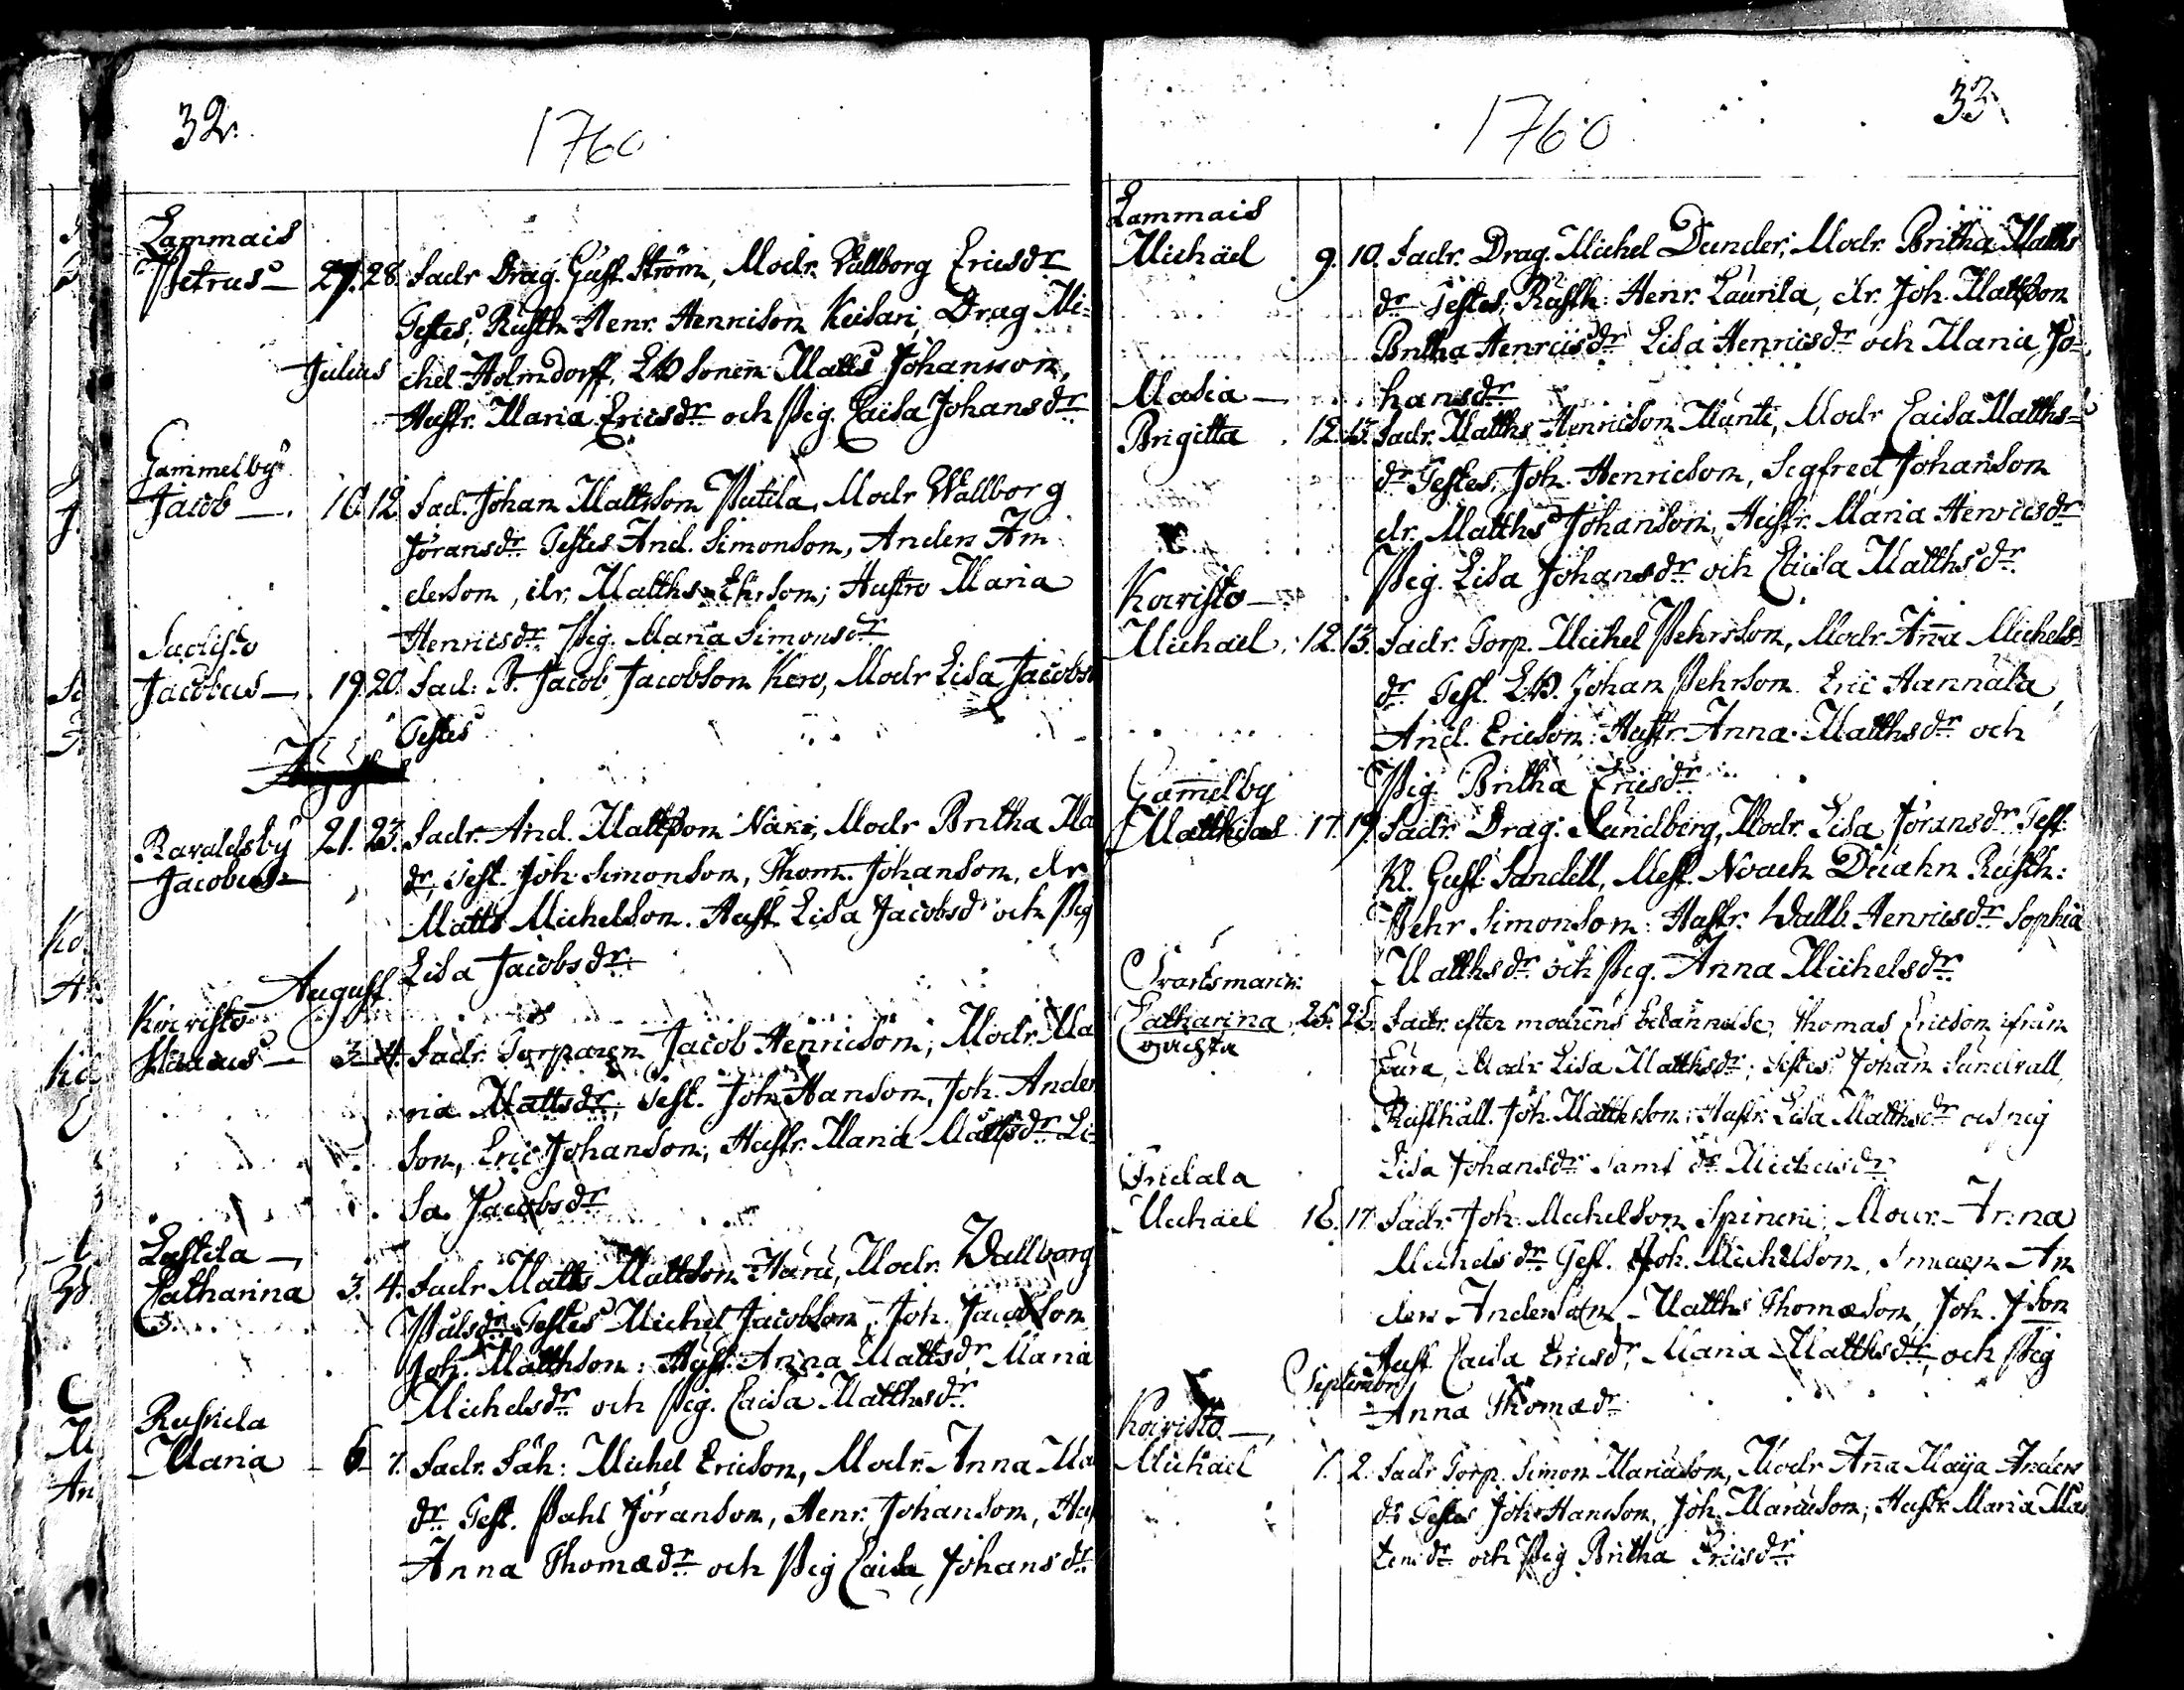 32.
1760
Lammais
Petrus — 27. 28. Fadr Drag. Gust. Ström, Modr. Vallborg Ericsdr
Testes, Rusth. Henr. Henricson Keisari, Drag Mi-
Julius chel Holmdorff, Sonen Matts Johansson,
Hustr. Maria Ericsdr och Pig. Caisa Johansdr
Gammelby
Jacob —. 10. 12. Fad. Johan Mattsson Putila, Modr Wallborg
Jöransdr Testes And. Simonson, Anders An
derson, dr. Matths Ehrson; Hustro Maria
Henricsdr Pig. Maria Simonsdr
Jacobus —. 19. 20. Fad. Jacob Jacobson Kero, Modr Lisa Jacobs
Testes
Ravaldsby 21. 23. Fadr. And. Mattsson Näki, Modr Britha Ma
Jacobus — dr, Test. Joh. Simonson, Thom. Johanson, dr
Matts Michelson. Hust Lisa Jacobsdr och Pig
Lisa Jacobsdr
August
Koivisto
3. 4. Fadr. Torparen Jacob Henricson, Modr. Ma
ria Mattsdr, Test. Joh Hanson, Joh. Anders
son, Eric Johanson; Hustr. Maria Mattsdr Li-
sa Jacobsdr
Lastila —
Catharina 3. 4. Fadr Matts Mattson Haru, Modr. Wallborg
Pålsdr Testes Michel Jacobson, Joh. Jacobson
Joh. Matthson: Hust. Anna Mattsdr Maria
Michelsdr och Pig. Caisa Matthsdr
Russila
Maria — 6 7. Fadr. Michel Ericson, Modr. Anna Ma
dr Test. Påhl Jöranson, Henr. Johanson, Hu
Anna Thomædr och Pig Caisa Johansdr
33
1760
Lammais
Michäel 9. 10. Fadr. Drag. Michel Dunder; Modr. Britha Matths
dr Testes, Rusth: Henr. Laurila, dr. Joh. Mattsson
Britha Henricsdr Lisa Henricsdr och Maria Jo-
Maria — hansdr
Brigitta 12. 13. Fadr. Matths Henricson Münti, Modr Caisa Matths-
dr Testes, Joh. Henricson, Segfred Johanson
dr. Matths Johanson, Hustr. Maria Henricsdr
Pig. Lisa Johansdr och Caisa Matthsdr
Koivisto —
Michael. 12. 13. Fadr. Torp. Michel Pehrson, Modr. Anna Michels-
dr Test. Johan Pehrson Eric Hannula,
And. Ericson: Hustr Anna Matthsdr och
Pig. Britha Ericsdr
Gamelby
Matthias 17. 19. Fadr. Drag. Lundberg, Modr. Lisa Jöransdr Test.
Kl. Gust. Sandell, Mest. Noach Rusth:
Pehr Simonson: Hustr. Wallb. Henricsdr Sophia
Matthsdr och Pig. Anna Michelsdr
Catharina 25. 26. Fadr. efter modrens bekännelse, Thomas Ericson ifrån
oächta Eura, Modr Lisa Matthsdr; Testes Johan Sundvall
Rusthåll. Joh. Matthson; Hustr. Lisa Matthsdr och pig
Lisa Johansdr samt dr Michelsdr
Michäel 16. 17. Fadr. Joh. Michelson Modr. Anna
Michelsdr Test. Joh. Michelson, An
ders Anderson, Matths Thomæson, Joh. Json
Hust Caisa Ericsdr, Maria Matthsdr, och Pig
September Anna Thomædr
Koivisto —
Michäel 1. 2. Fadr Torp. Simon Mariason, Modr Anna Maija Anders
dr Testes Joh Hansson, Joh. Marcuson; Hustr Maria Mår
tensdr och Pig Britha Ericsdr